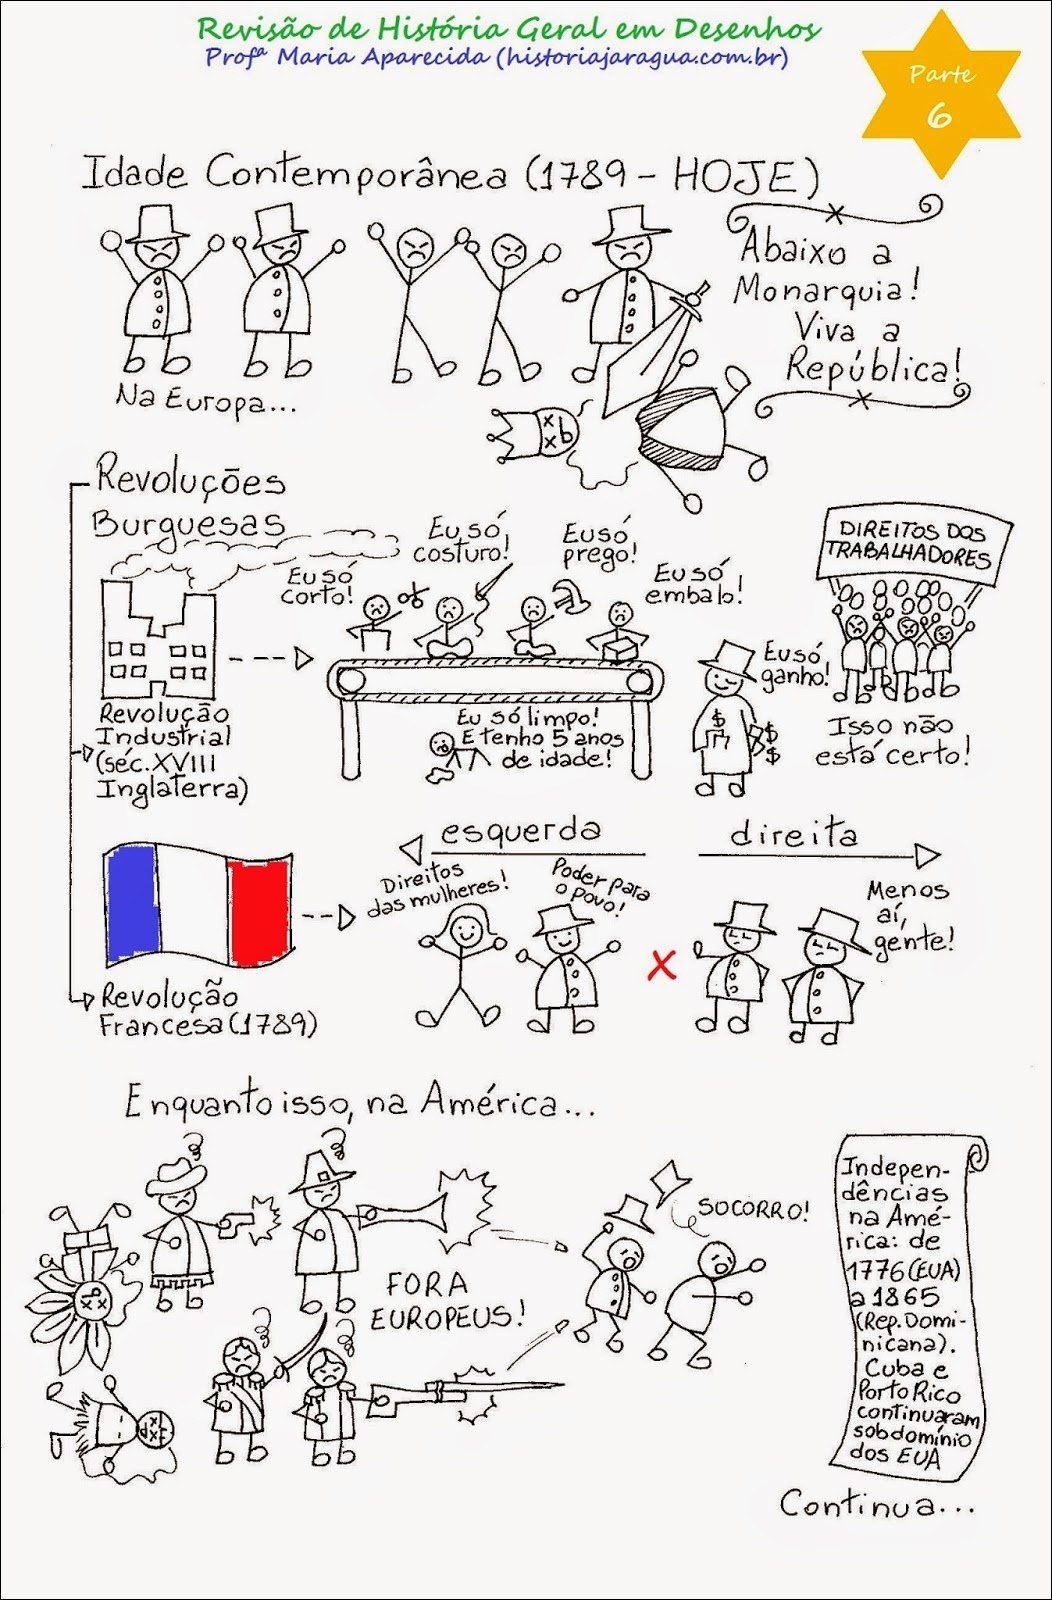 Revisão de História Geral em Desenhos
Profª Maria Aparecida (historiajaragua.com.br)
Parte
6
Idade Contemporânea (1789 - HOJE)
Abaixo a
Monarquia!
Viva a
República!
Na Europa...
Revoluções
Burguesas
Eu só
corto!
Eu só
costuro!
Eu só
prego!
Eu só
embalo!
DIREITOS DOS
TRABALHADORES
Eu só
ganho!
Revolução
Industrial
(séc. XVIII
Inglaterra)
Eu só limpo!
E tenho 5 anos
de idade!
$
$
$
Isso não
está certo!
esquerda
direita
Direitos
das mulheres!
Poder para
o povo!
X
Menos
aí,
gente!
Revolução
Francesa (1789)
Enquanto isso, na América...
FORA
EUROPEUS!
SOCORRO!
Indepen-
dências
na Amé-
rica: de
1776 (EUA)
a 1865
(Rep. Domi-
nicana).
Cuba e
Porto Rico
continuaram
sob domínio
dos EUA
Continua...